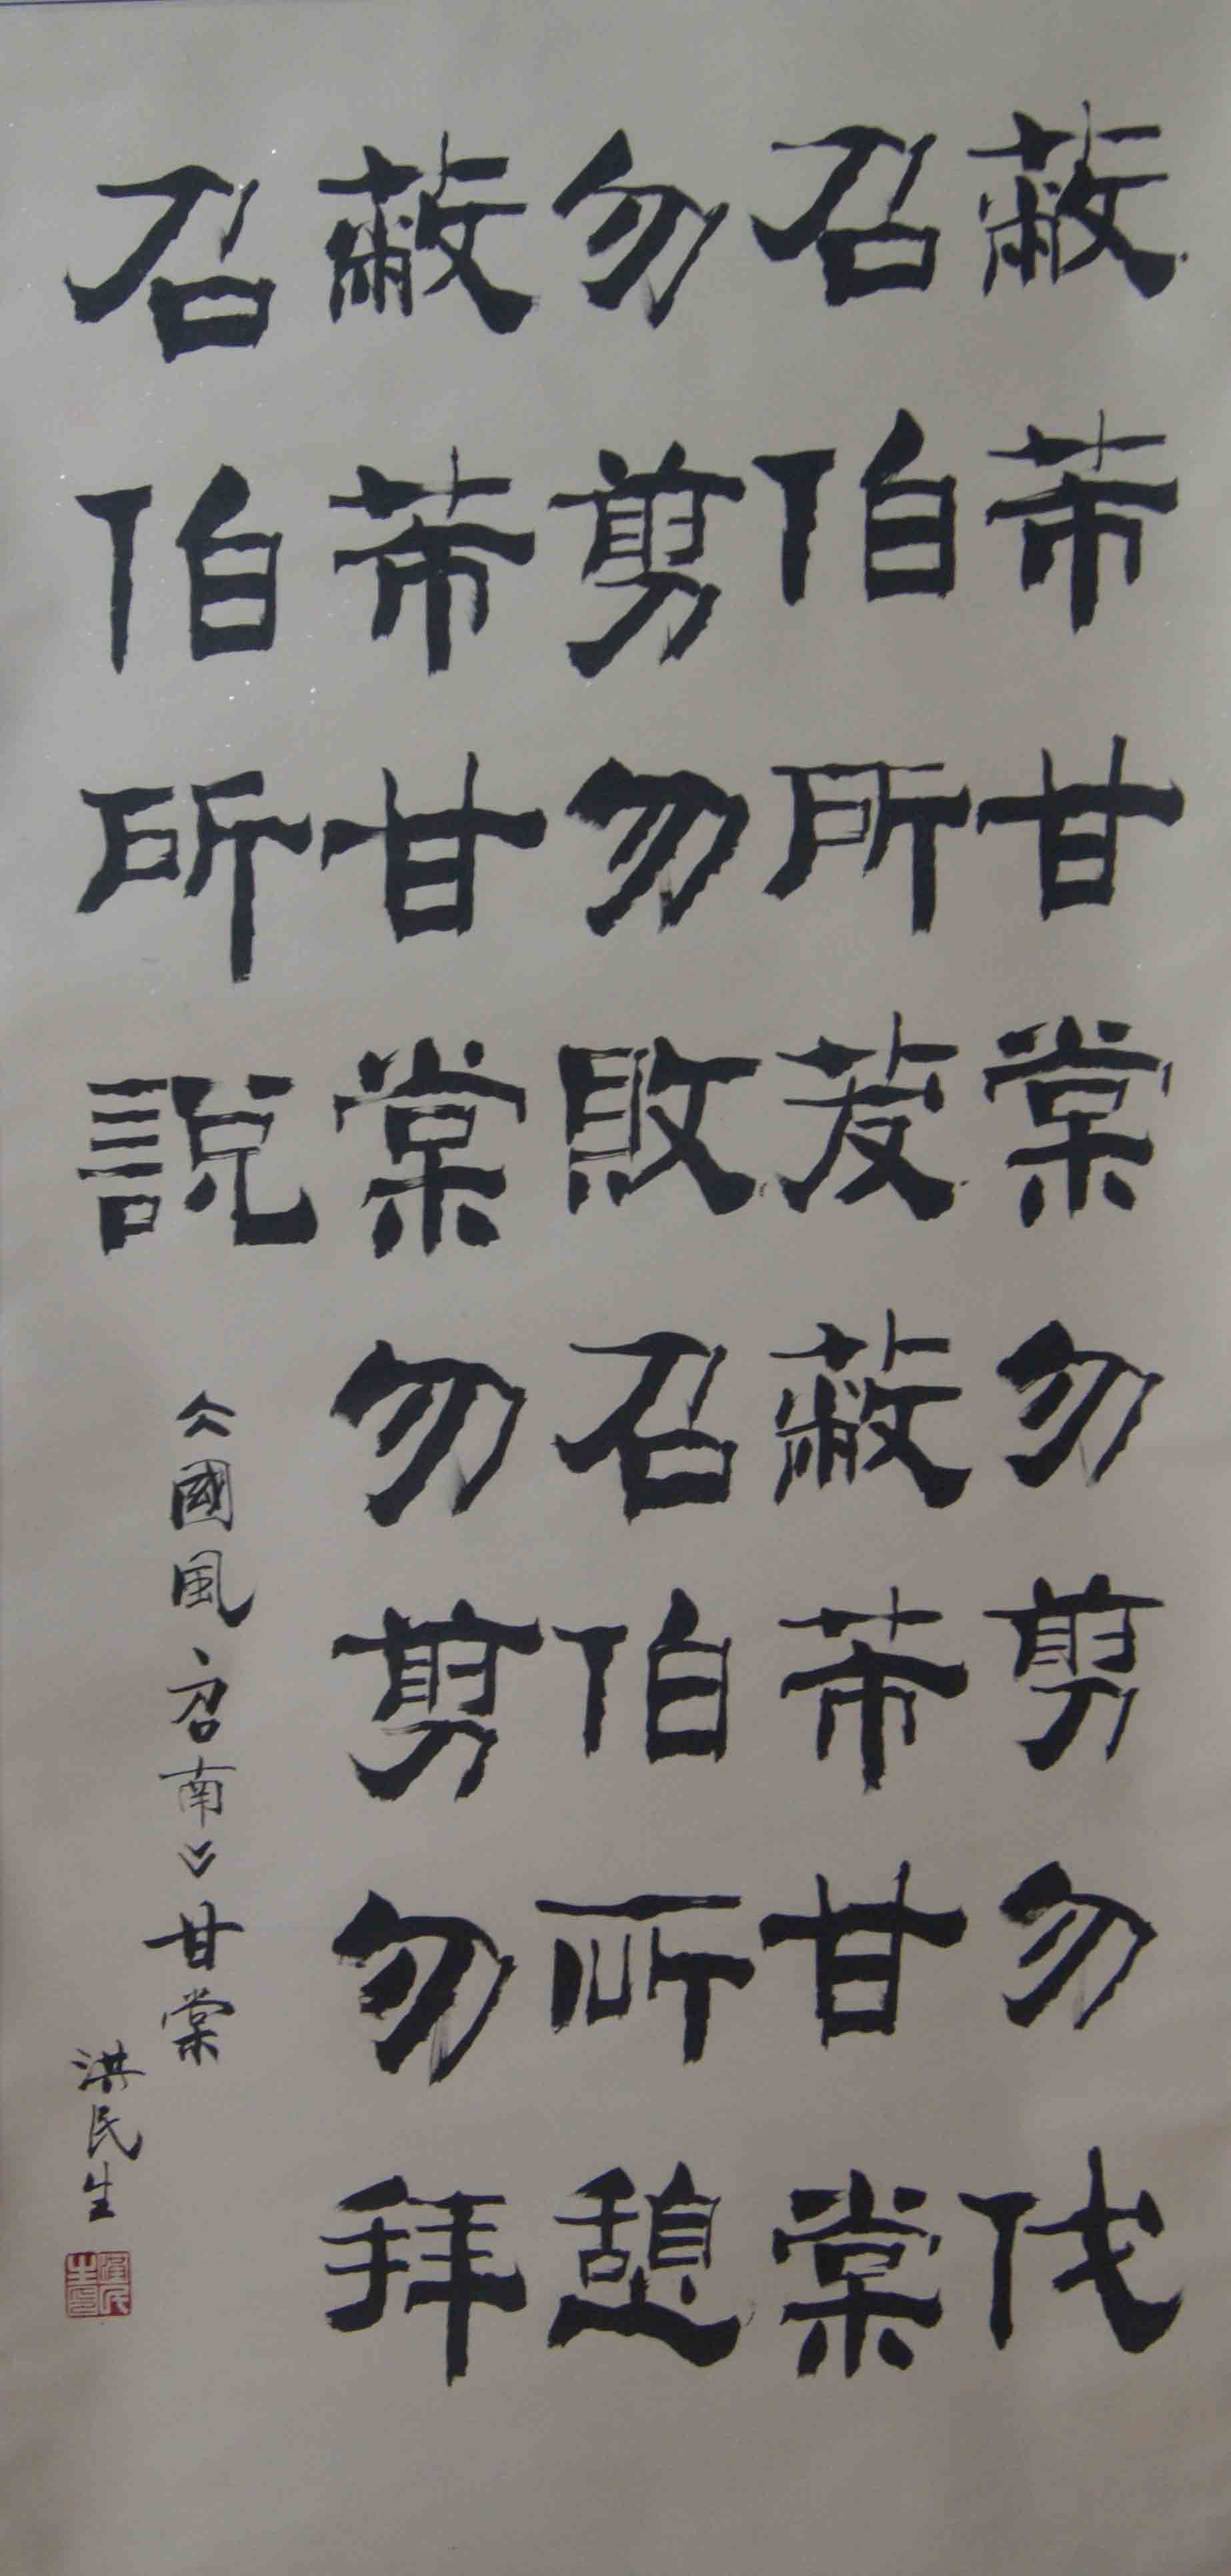 蔽芾甘棠勿剪勿伐
召伯所茇蔽芾甘棠
勿剪勿敗召伯所憩
蔽芾甘棠勿剪勿拜
召伯所說
《國風、召南》甘棠
洪民生